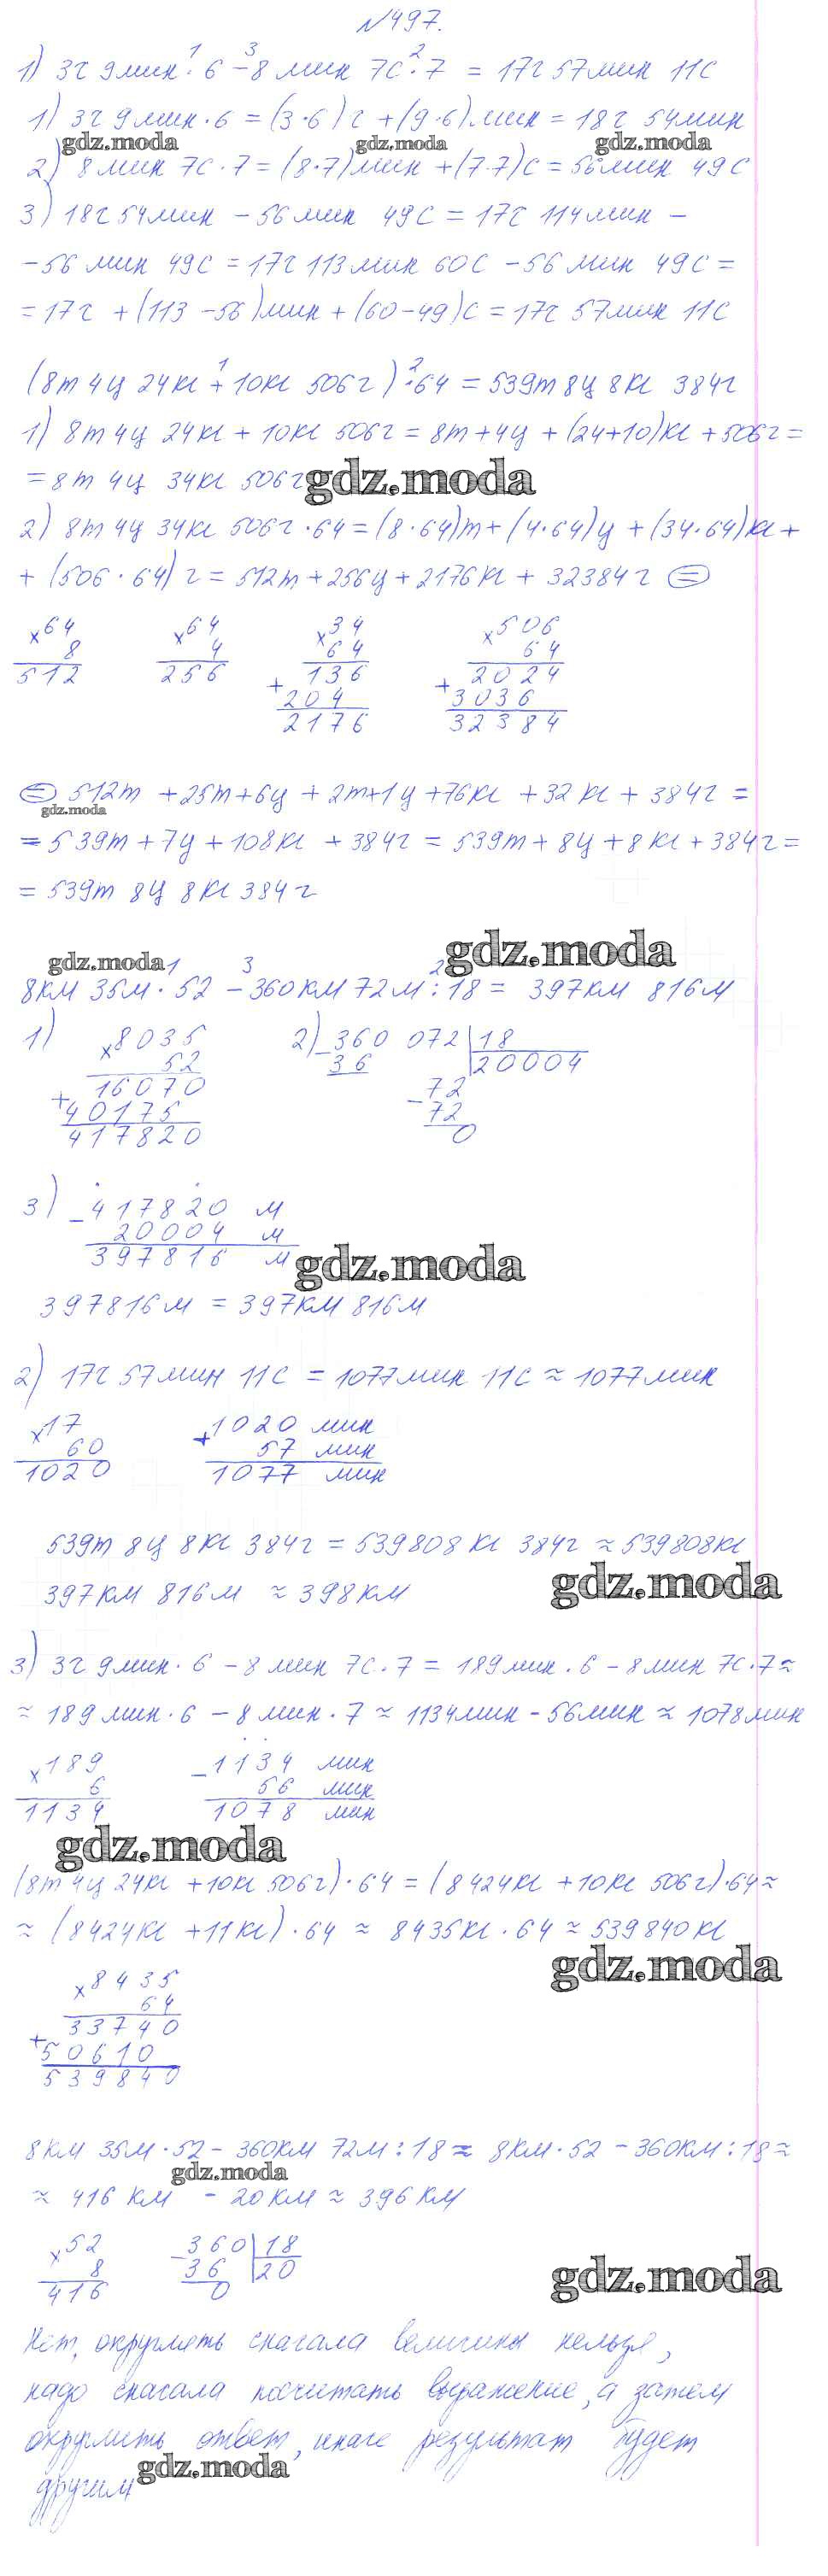 №497.
1 3 2
1) 3ч 9мин · 6 − 8 мин 7с · 7 = 17ч 57мин 11с
1) 3ч 9мин · 6 = (3·6)ч + (9·6)мин = 18ч 54мин
gdz.moda gdz.moda gdz.moda
2) 8мин 7с · 7 = (8·7)мин + (7·7)с = 56мин 49с
3) 18ч 54мин − 56мин 49с = 17ч 114мин −
− 56 мин 49с = 17ч 113мин 60с − 56мин 49с =
= 17ч + (113 − 56)мин + (60 − 49)с = 17ч 57мин 11с
1 2
(8т 4ц 24кг + 10кг 506г) · 64 = 539т 8ц 8кг 384г
1) 8т 4ц 24кг + 10кг 506г = 8т + 4ц + (24+10)кг + 506г =
= 8т 4ц 34кг 506г gdz.moda
2) 8т 4ц 34кг 506г · 64 = (8·64)т + (4·64)ц + (34·64)кг +
+ (506·64)г = 512т + 256ц + 2176кг + 32384г =
×64 ×64 ×34 ×506
8 4 64 64
512 256 136 2024
+ 204 + 3036
2176 32384
= 512т + 25т + 6ц + 2т + 1ц + 76кг + 32кг + 384г =
gdz.moda
= 539т + 7ц + 108кг + 384г = 539т + 8ц + 8кг + 384г =
= 539т 8ц 8кг 384г
gdz.moda
gdz.moda 1 3 2
8км 35м · 52 − 360км 72м : 18 = 397км 816м
1) ×8035 2) −360 072 | 18
52 36 20004
+ 16070 −72
40175 72
417820 0
3) −417820 м
20004 м
397816 м gdz.moda
397816м = 397км 816м
2) 17ч 57мин 11с = 1077мин 11с ≈ 1077мин
×17 +1020 мин
60 57 мин
1020 1077 мин
539т 8ц 8кг 384г = 539808кг 384г ≈ 539808кг
397км 816м ≈ 398км gdz.moda
3) 3ч 9мин · 6 − 8 мин 7с · 7 = 189мин · 6 − 8мин 7с · 7 ≈
≈ 189мин · 6 − 8мин · 7 ≈ 1134мин − 56мин ≈ 1078мин
×189 −1134 мин
6 56 мин
1134 1078 мин
gdz.moda
(8т 4ц 24кг + 10кг 506г) · 64 = (8424кг + 10кг 506г) · 64 ≈
≈ (8424кг + 11кг) · 64 ≈ 8435кг · 64 ≈ 539840кг
gdz.moda
×8435
64
+ 33740
50610
539840
8км 35м · 52 − 360км 72м : 18 ≈ 8км · 52 − 360км : 18 ≈
gdz.moda
≈ 416 км − 20км ≈ 396км
×52 −360 | 18
8 36 20
416 0
gdz.moda
Нет, округлять сначала величины нельзя,
надо сначала посчитать выражение, а затем
округлить ответ, иначе результат будет
другим gdz.moda